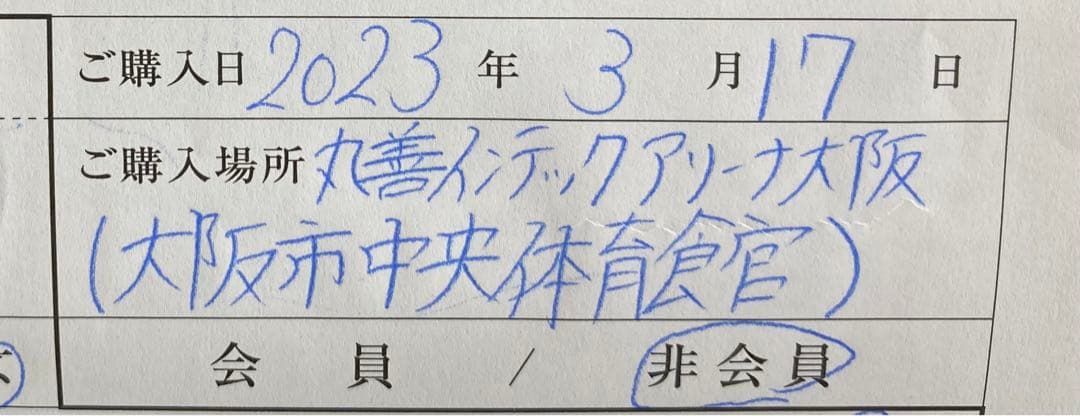 ご購入日 2023 年 3 月 17 日
ご購入場所 丸善インテックアリーナ大阪
(大阪市中央体育館)
会 員 / 非会員